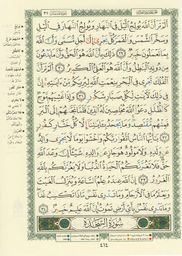 أَلَمْ تَرَ أَنَّ اللَّهَ يُولِجُ اللَّيْلَ فِي النَّهَارِ وَيُولِجُ النَّهَارَ فِي اللَّيْلِ
وَسَخَّرَ الشَّمْسَ وَالْقَمَرَ كُلٌّ يَجْرِي إِلَى أَجَلٍ مُسَمًّى وَأَنَّ اللَّهَ
بِمَا تَعْمَلُونَ خَبِيرٌ ٢٩ ذَلِكَ بِأَنَّ اللَّهَ هُوَ الْحَقُّ وَأَنَّ مَا يَدْعُونَ
مِنْ دُونِهِ الْبَاطِلُ وَأَنَّ اللَّهَ هُوَ الْعَلِيُّ الْكَبِيرُ ٣٠ أَلَمْ تَرَ أَنَّ
الْفُلْكَ تَجْرِي فِي الْبَحْرِ بِنِعْمَتِ اللَّهِ لِيُرِيَكُمْ مِنْ آيَاتِهِ إِنَّ فِي ذَلِكَ
لَآيَاتٍ لِكُلِّ صَبَّارٍ شَكُورٍ ٣١ وَإِذَا غَشِيَهُمْ مَوْجٌ كَالظُّلَلِ
دَعَوُا اللَّهَ مُخْلِصِينَ لَهُ الدِّينَ فَلَمَّا نَجَّاهُمْ إِلَى الْبَرِّ
فَمِنْهُمْ مُقْتَصِدٌ وَمَا يَجْحَدُ بِآيَاتِنَا إِلَّا كُلُّ خَتَّارٍ كَفُورٍ
٣٢ يَا أَيُّهَا النَّاسُ اتَّقُوا رَبَّكُمْ وَاخْشَوْا يَوْمًا لَا يَجْزِي
وَالِدٌ عَنْ وَلَدِهِ وَلَا مَوْلُودٌ هُوَ جَازٍ عَنْ وَالِدِهِ شَيْئًا إِنَّ وَعْدَ اللَّهِ
حَقٌّ فَلَا تَغُرَّنَّكُمُ الْحَيَاةُ الدُّنْيَا وَلَا يَغُرَّنَّكُمْ بِاللَّهِ
الْغَرُورُ ٣٣ إِنَّ اللَّهَ عِنْدَهُ عِلْمُ السَّاعَةِ وَيُنَزِّلُ الْغَيْثَ
وَيَعْلَمُ مَا فِي الْأَرْحَامِ وَمَا تَدْرِي نَفْسٌ مَاذَا تَكْسِبُ غَدًا
وَمَا تَدْرِي نَفْسٌ بِأَيِّ أَرْضٍ تَمُوتُ إِنَّ اللَّهَ عَلِيمٌ خَبِيرٌ ٣٤
سُورَةُ السَّجْدَةِ
٤١٤